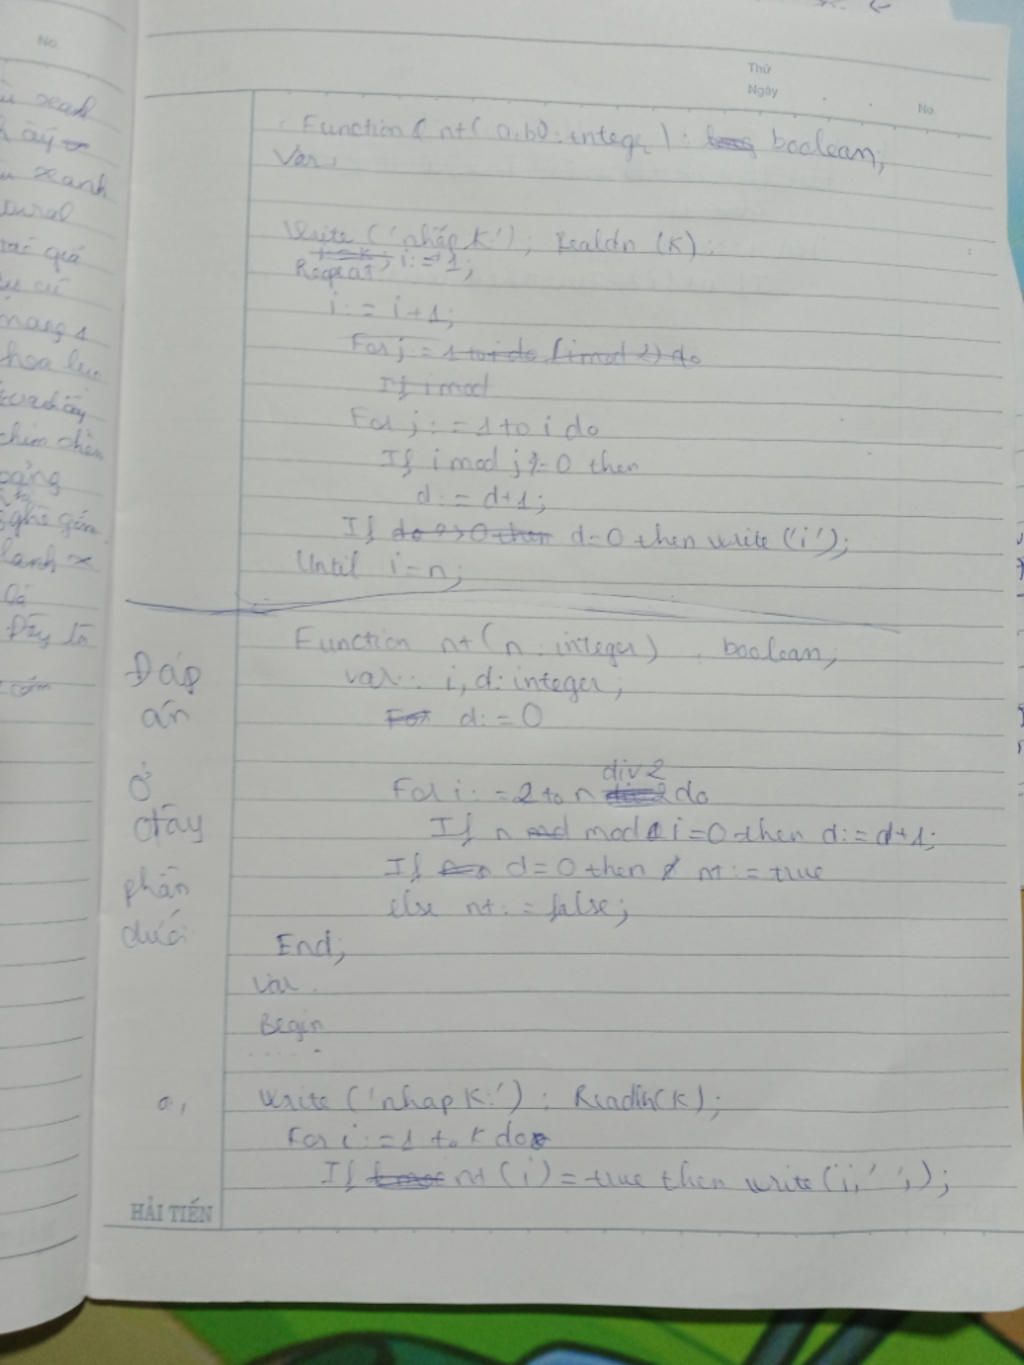 No
Thứ
Ngày
No
Function ( nt( a,b): integer ): boolean;
Var:
Write ('nhấp K:'); Realdn (K);
i:=1;
Repeat
i := i+1;
For j := 1 to i do (i mod 2) do
If i mod
For j := 1 to i do
If i mod j = 0 then
d := d+1;
If do <>0 then d=0 then write ('i');
Until i=n;
Đáp
án
ở
đây
phần
dưới
Function nt( n : integer) : boolean;
var : i, d: integer;
For d := 0
div 2
For i := 2 to n do
If n mod i=0 then d:= d+1;
If d=0 then nt := true
else nt := false;
End;
Var
Begin
.....
a,
Write ('nhap K:') ; Readln(K);
For i := 1 to K do
If nt (i) = true then write (i,' ',);
HẢI TIẾN
xanh
ấy
xanh
quá
mang 1
hoa
chim
lanh
Đây là